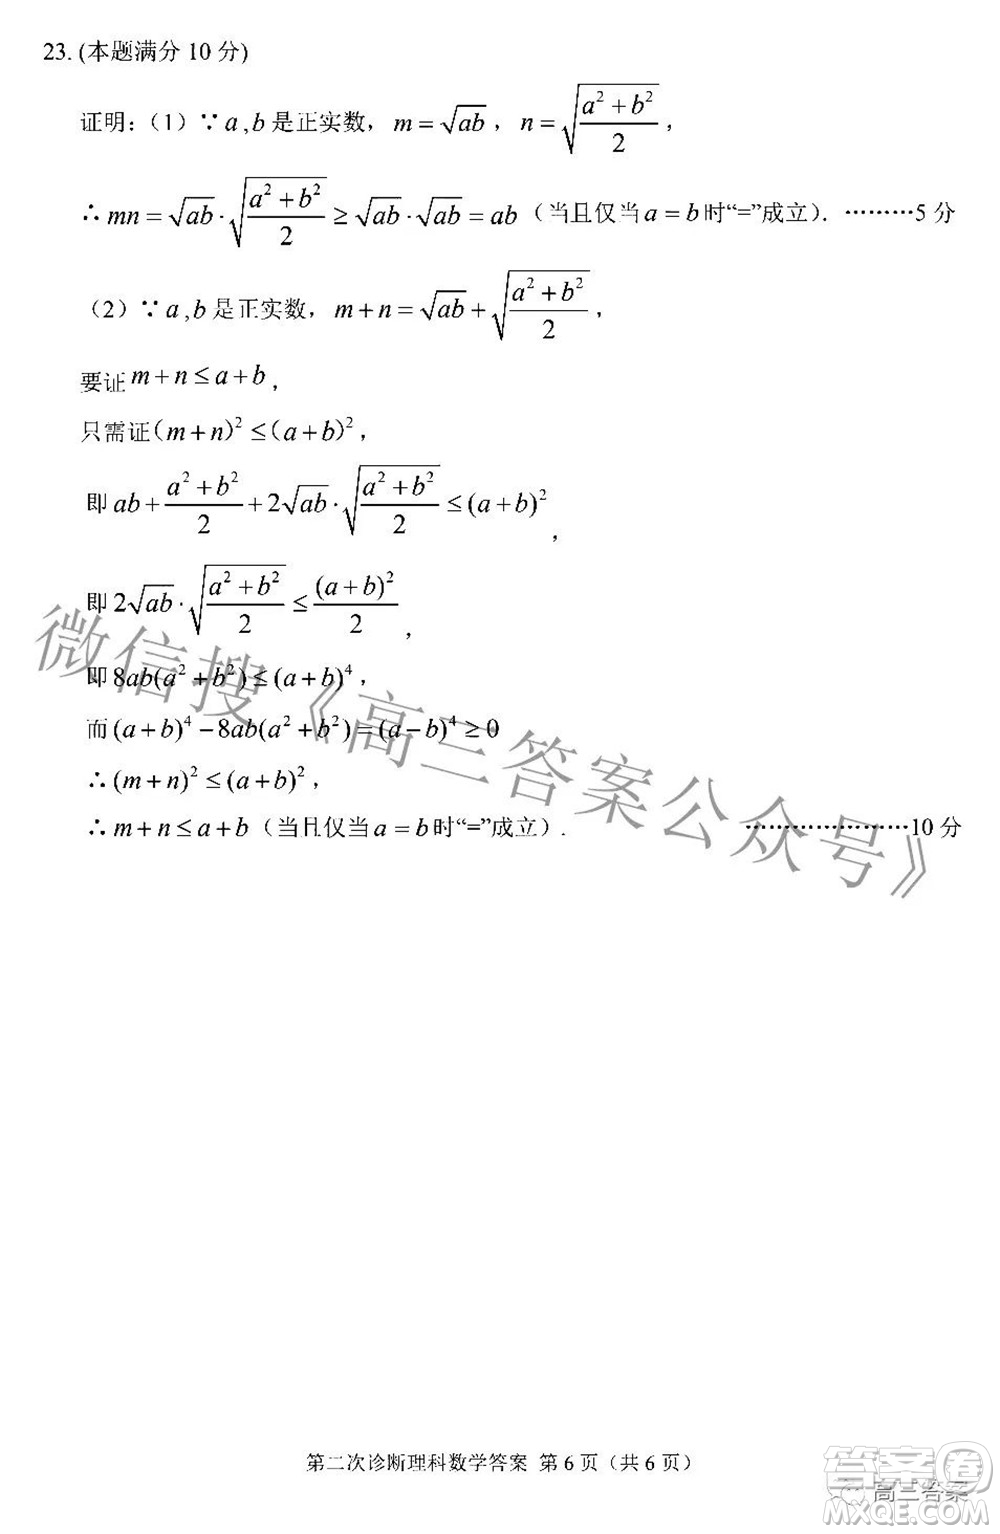 23. (本题满分 10 分)
证明：（1）∵ a , b 是正实数， m = √(ab) ， n = √((a² + b²)/2) ，
∴ mn = √(ab) · √((a² + b²)/2) ≥ √(ab) · √(ab) = ab （当且仅当 a = b 时“=”成立）. ………5 分
（2）∵ a , b 是正实数， m + n = √(ab) + √((a² + b²)/2) ，
要证 m + n ≤ a + b ，
只需证 (m + n)² ≤ (a + b)² ，
即 ab + (a² + b²)/2 + 2√(ab) · √((a² + b²)/2) ≤ (a + b)² ，
即 2√(ab) · √((a² + b²)/2) ≤ (a + b)²/2 ，
即 8ab(a² + b²) ≤ (a + b)⁴ ，
而 (a + b)⁴ − 8ab(a² + b²) = (a − b)⁴ ≥ 0
∴ (m + n)² ≤ (a + b)² ，
∴ m + n ≤ a + b （当且仅当 a = b 时“=”成立）. …………………10 分
微信搜《高三答案公众号》
第二次诊断理科数学答案 第 6 页（共 6 页）
答案圈
高三答案
MXQE.COM